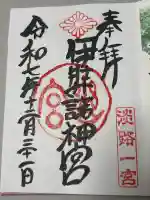 奉拝
伊弉諾神宮
令和七年十二月三十一日
淡路一宮